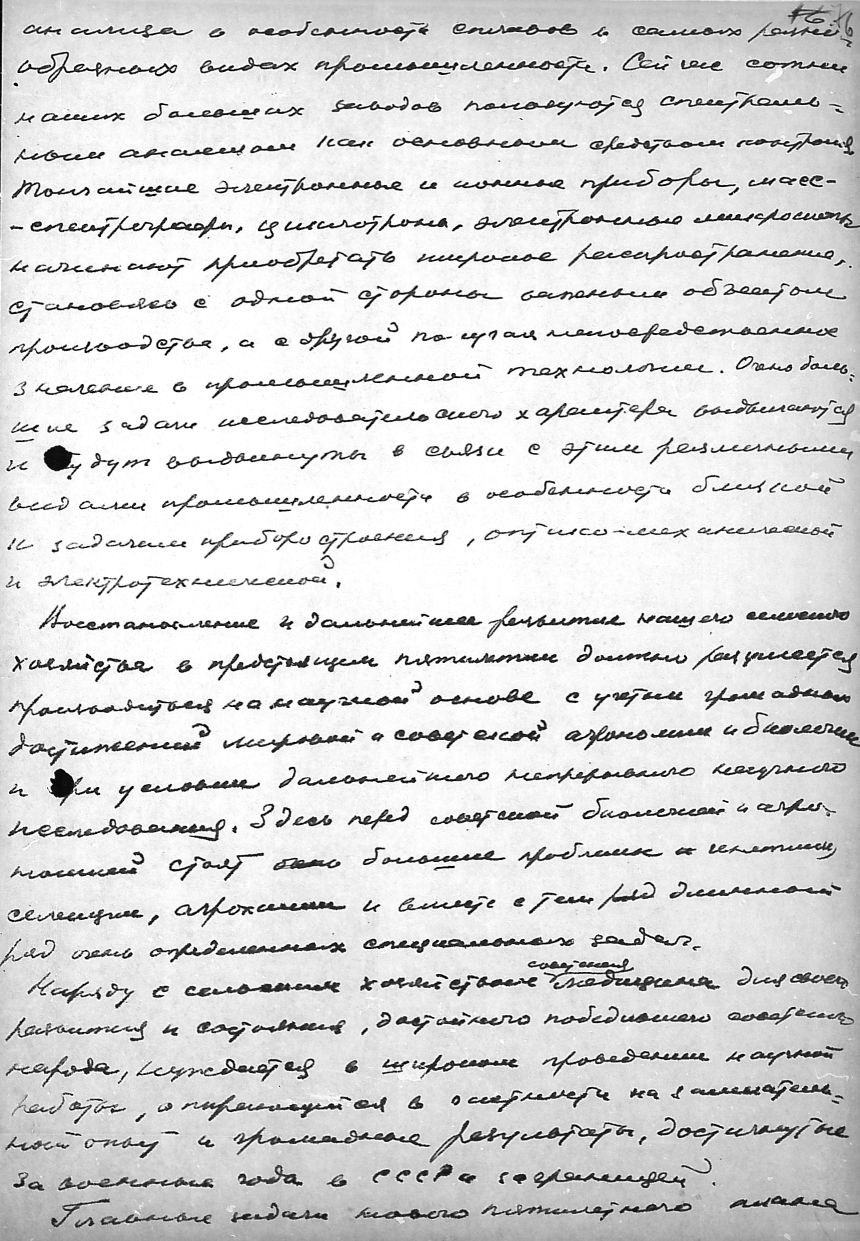 16
анализа в особенности сплавов в самых разно-
образных видах промышленности. Сейчас сотни
наших больших заводов пользуются спектраль-
ным анализом как основным средством контроля.
Тончайшие электронные и ионные приборы, масс-
-спектрографы, циклотроны, электронные микроскопы
начинают приобретать широкое распространение,
становясь с одной стороны важным объектом
производства, а с другой получая непосредственное
значение в промышленной технологии. Очень боль-
шие задачи исследовательского характера выдвигаются
и будут выдвинуты в связи с этим различными
видами промышленности в особенности близкой
к задачам приборостроения, оптико-механической
и электротехнической.
Восстановление и дальнейшее развитие нашего сельского
хозяйства в предстоящем пятилетии должно разумеется
производиться на научной основе с учетом громадных
достижений мировой и советской агрономии и биологии
и при условии дальнейшего непрерывного научного
исследования. Здесь перед советской биологией и агро-
номией стоят большие проблемы генетики,
селекции, агрохимии и вместе с тем ряд длинный
ряд очень определенных специальных задач.
Наряду с сельским хозяйством советская медицина для своего
развития и состояния, достойного победившего советского
народа, нуждается в широком проведении научной
работы, опирающейся в частности на замечатель-
ный опыт и громадные результаты, достигнутые
за военные года в СССР и заграницей.
Главные задачи нового пятилетнего плана